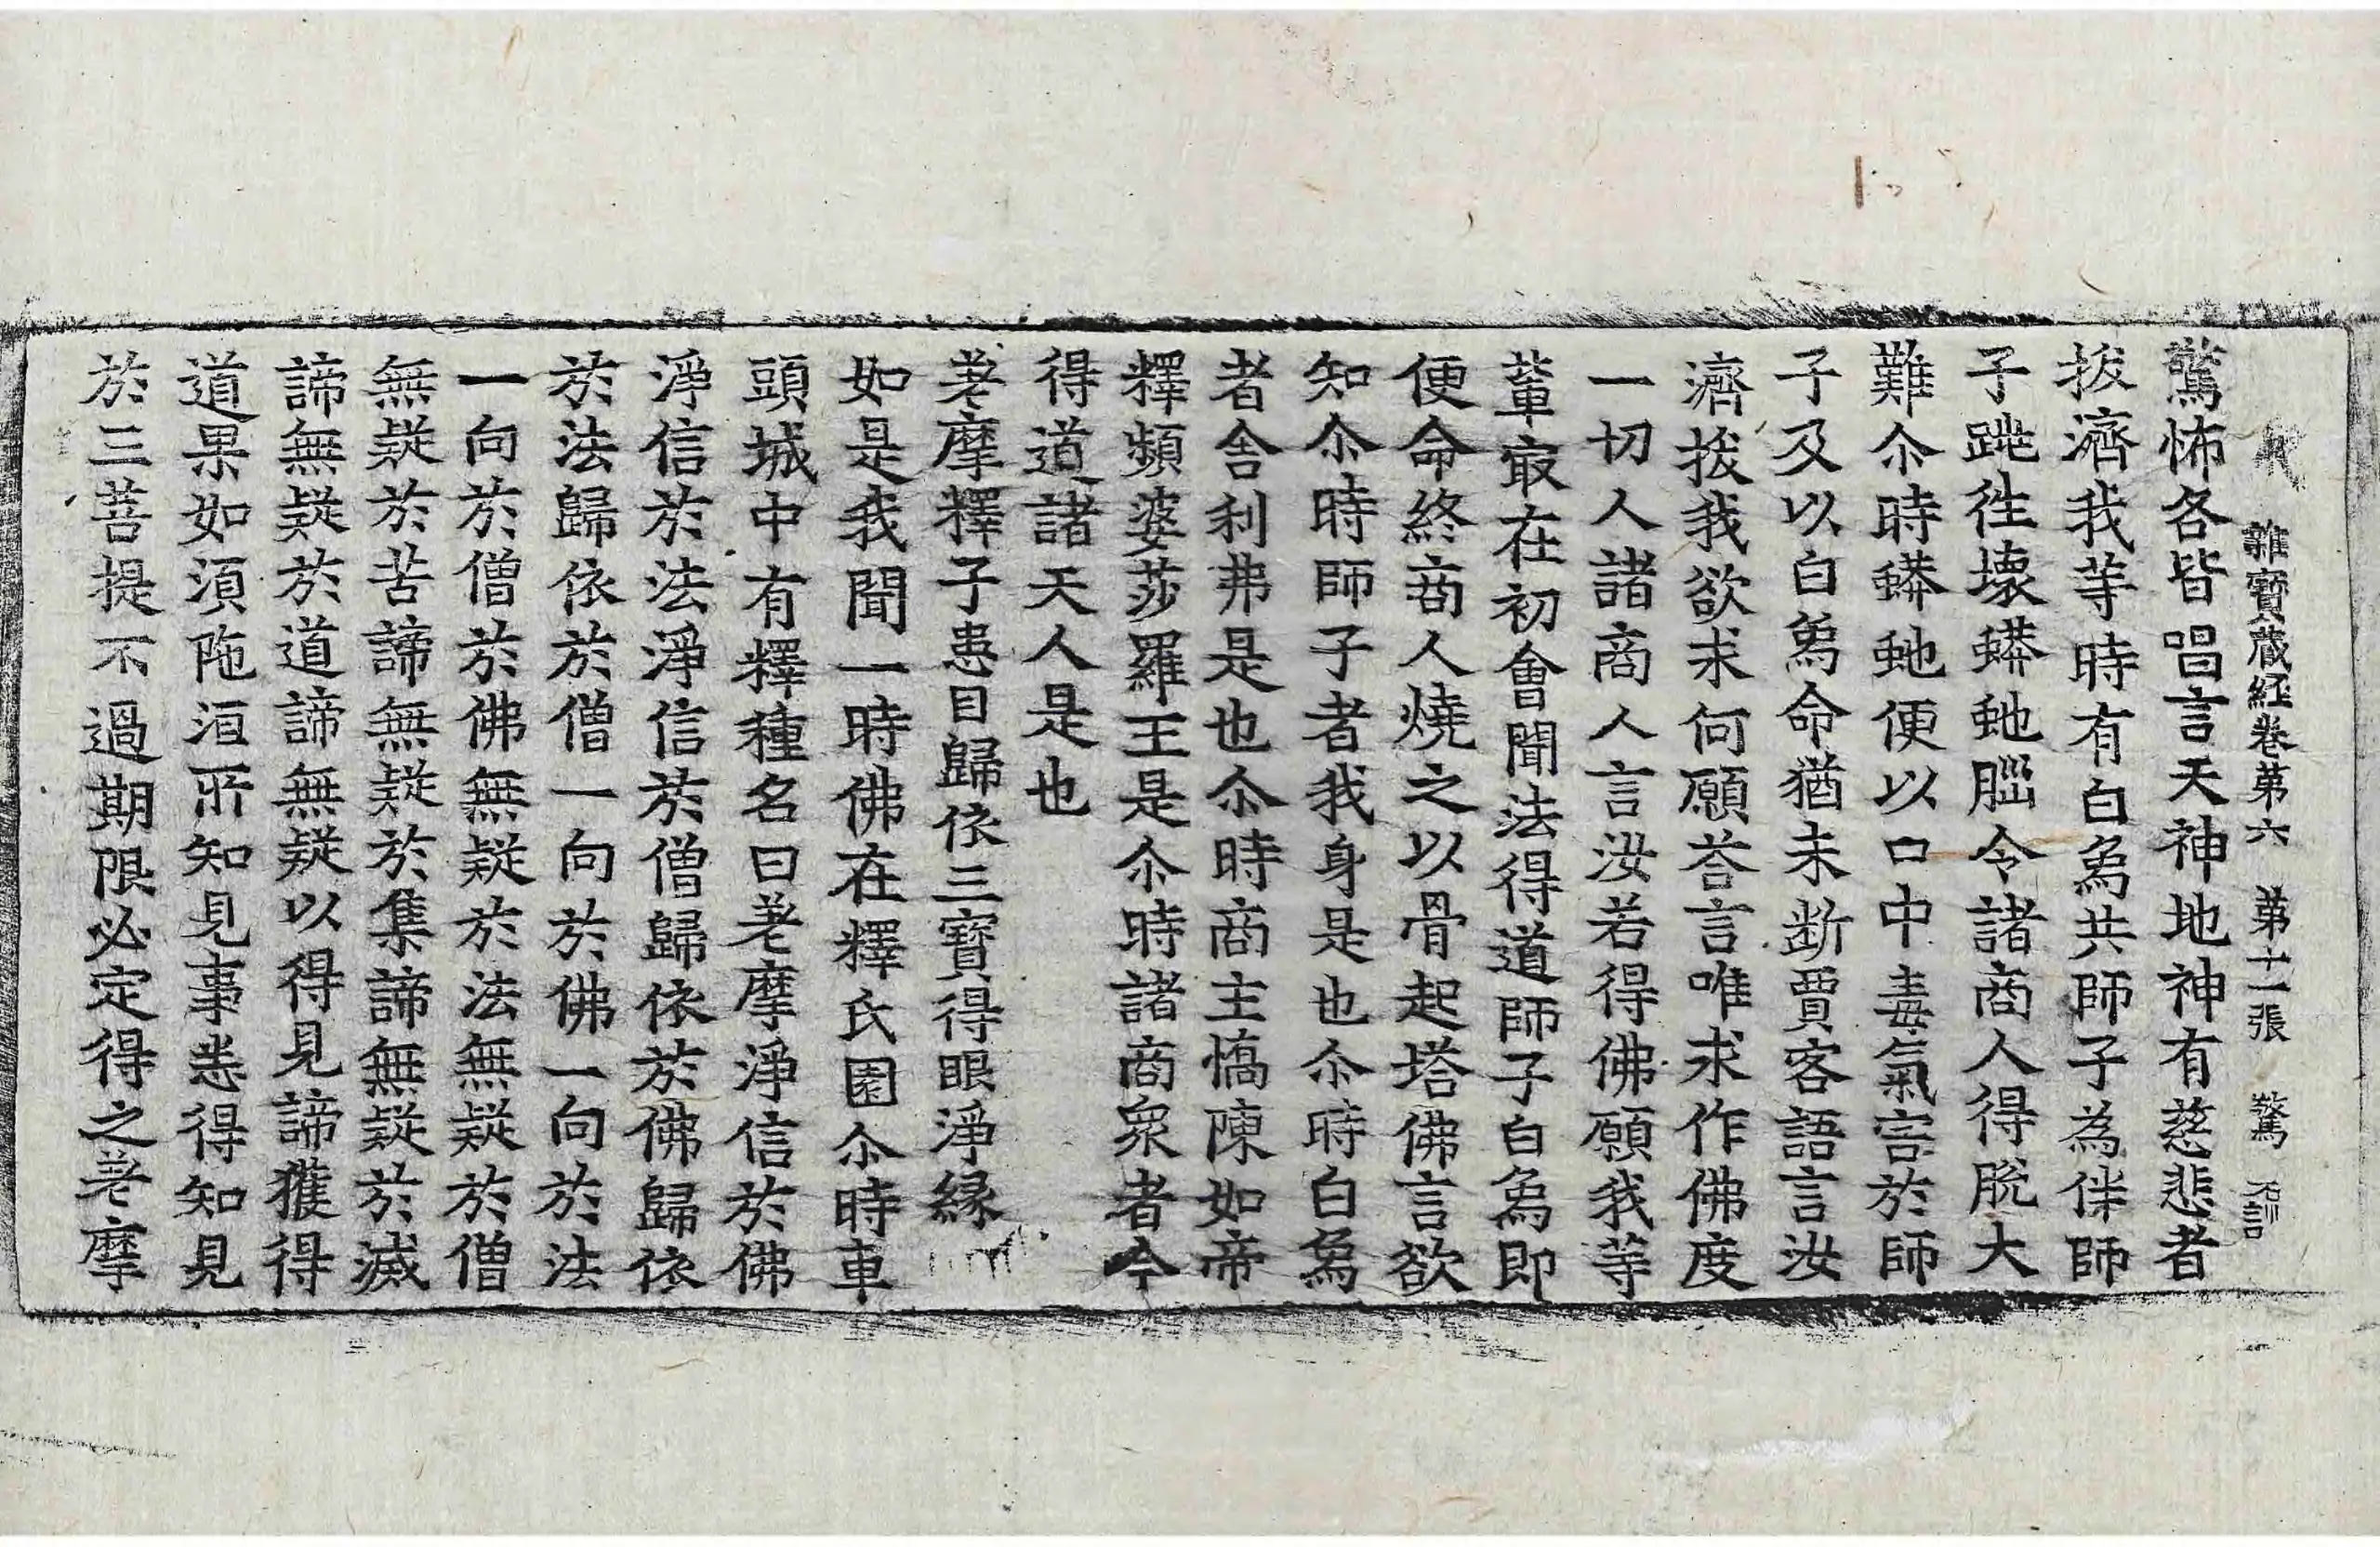 雜寶藏経卷第六　第十一張　驚
驚怖各皆唱言天神地神有慈悲者
拔濟我等時有白象共師子為伴師
子跳徃壞蟒虵腦令諸商人得脫大
難尒時蟒虵便以口中毒氣害於師
子及以白象命猶未断賈客語言汝
濟拔我欲求何願荅言唯求作佛度
一切人諸商人言汝若得佛願我等
軰㝡在初會聞法得道師子白象即
便命終商人燒之以骨起塔佛言欲
知尒時師子者我身是也尒時白象
者舍利弗是也尒時商主憍陳如帝
釋頻婆莎羅王是尒時諸商衆者今
得道諸天人是也
差摩釋子患目歸依三寶得眼淨縁
如是我聞一時佛在釋氏園尒時車
頭城中有釋種名曰差摩淨信於佛
淨信於法淨信於僧歸依於佛歸依
於法歸依於僧一向於佛一向於法
一向於僧於佛無疑於法無疑於僧
無疑於苦諦無疑於集諦無疑於滅
諦無疑於道諦無疑以得見諦獲得
道果如湏陁洹所知見事悉得知見
於三菩提不過期限必定得之差摩